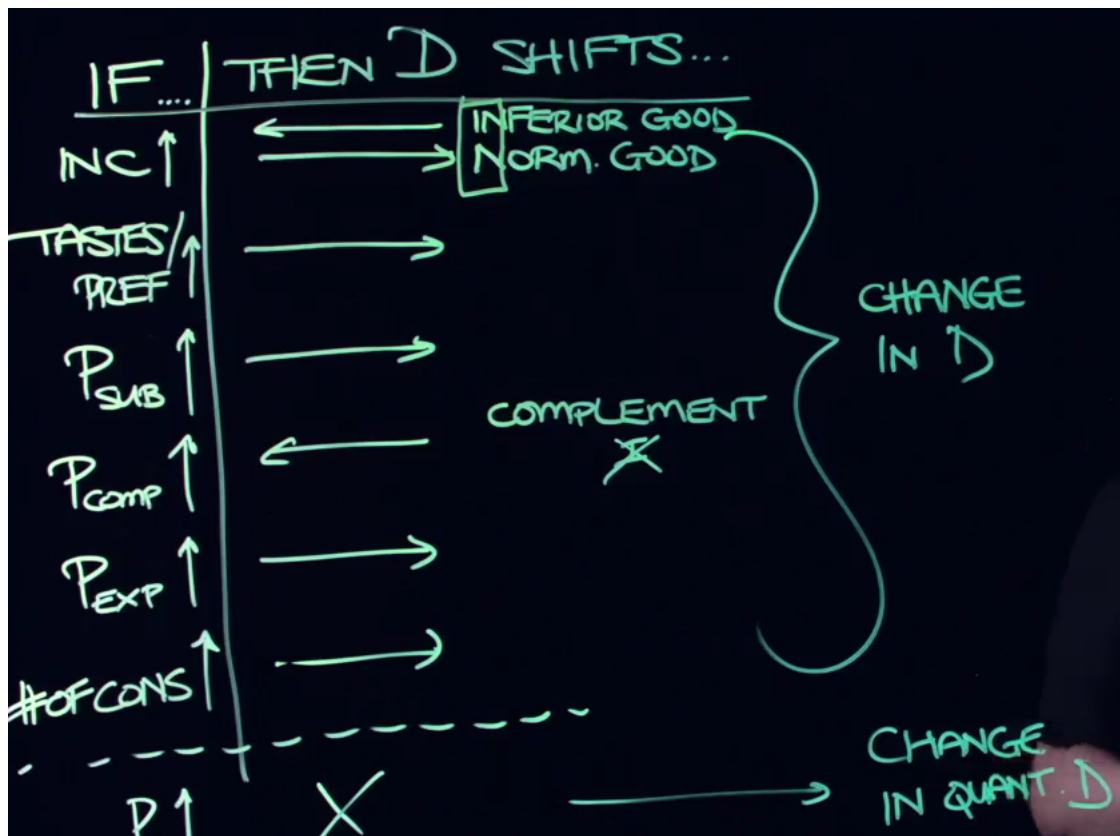 IF....
THEN D SHIFTS...
INC ↑
← INFERIOR GOOD
→ NORM. GOOD
TASTES/
PREF ↑ →
P SUB ↑ →
P COMP ↑ ←
COMPLEMENT
P EXP ↑ →
# OF CONS ↑ →
CHANGE
IN D
P ↑ X →
CHANGE
IN QUANT. D